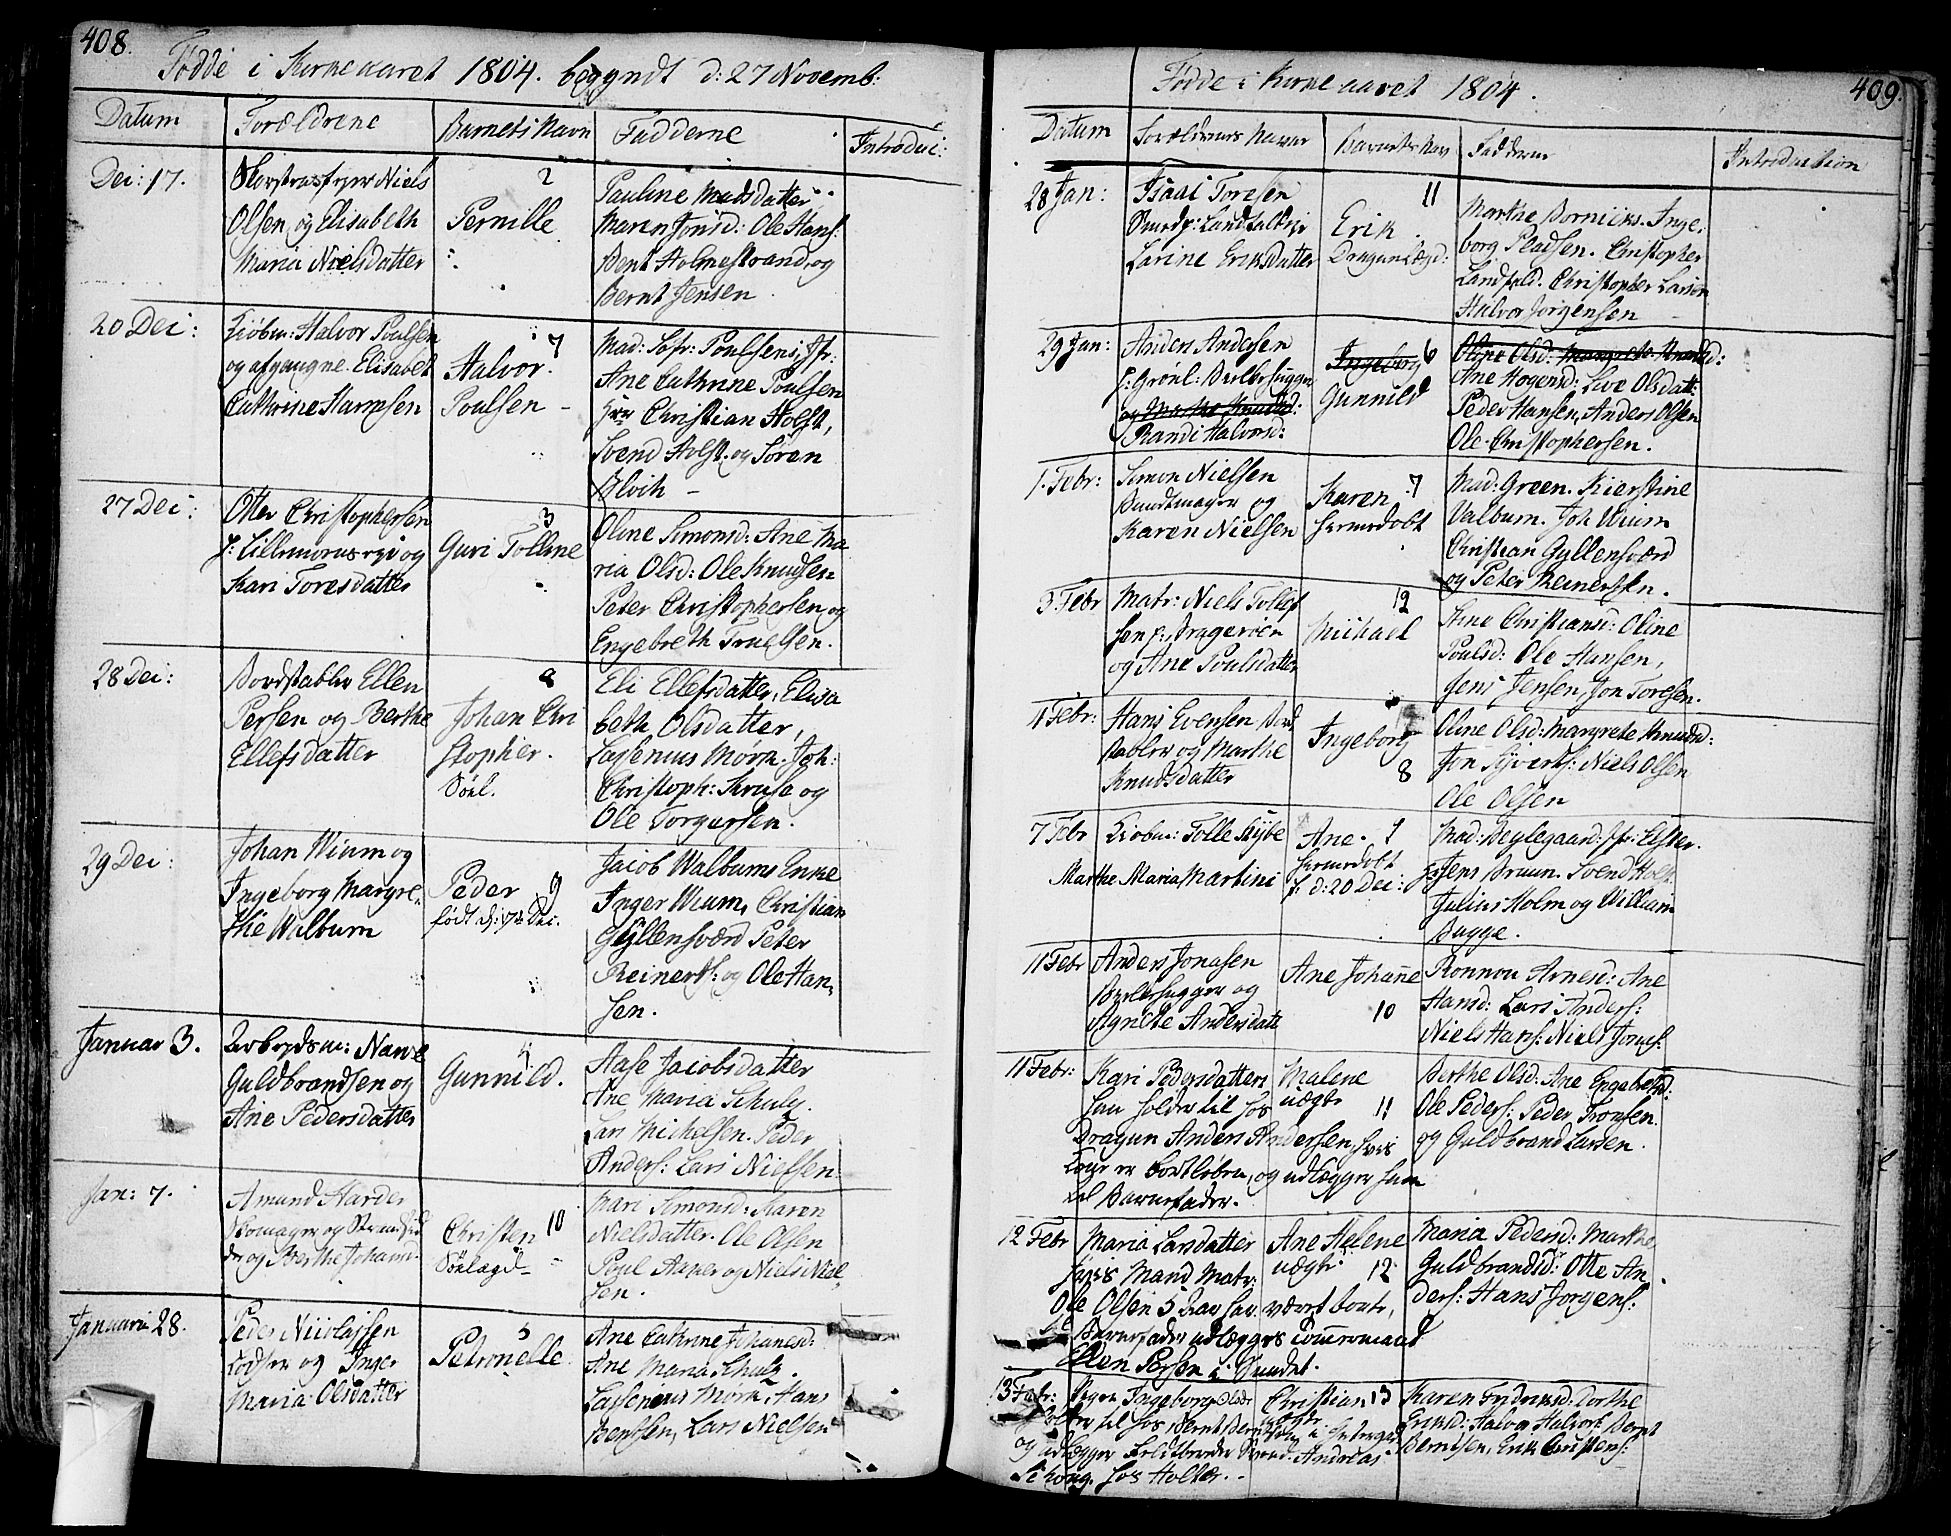 408.
Fødde i Kirkeaaret 1804. begyndt d: 27 Novemb:
Datum Forældrene Barnets Navn Fadderne Introduc:
Dec: 17.
Niels
Olsen og Elisabeth
Maria Nielsdatter
2
Pernille
Pauline Madsdatter
Maren Jonsd: Ole Hans:
Bent Holmestrand, og
Bernt Jensen
20 Dec:
Kiøbm: Halvor Poulsen
og afgangne Elisabet
Cathrine Harmsen
7
Halvor
Poulsen
Mad: Sofr: Poulsens, Jfr:
Ane Cathrine Poulsen
Hrr Christian Holst,
Svend Holst. og Søren
Blich
27 Dec:
Otter Christophersen
og
Kari Toresdatter
3
Guri Tolline
Oline Simonsd: Ane Ma
ria Olsd: Ole Knudsen
Peter Christophersen og
Engebreth Truelsen.
28 Dec:
Bordstabler Ellen
Persen og Berthe
Ellefsdatter
8
Johan Chri
stopher.
Søel.
Eli Ellefsdatter, Elisa
beth Olsdatter,
Lassenius Mørk. Joh:
Christoph: Kruse og
Ole Torgersen.
29 Dec:
Johan Wium og
Ingeborg Margre
the Walbum
Peder 9
født d: Dec.
Jacob Walbums Enke
Inger Wium, Christian
Gyllensværd Peter
Reinerts: og Ole Han,
sen.
Januar 3.
Arbeydsm: Narve
Guldbrandsen og
Ane Pedersdatter
4
Gunnild.
Aase Jacobsdatter
Ane Maria Schulz.
Lars Michelsen. Peder
Anders: Lars Nielsen
Jan: 7.
Amund Harder
Skomager og
og Berthe Johans
Christen 10
Sølagd
Kari Simonsd: Karen
Nielsdatter. Ole Olsen
Poul Aaner og Niels Niel,
sen.
Januari 28.
Peder Nicolaysen
Lodser og Inger
Maria Olsdatter
5
Petronelle
Ane Cathrine Johansd:
Ane Maria Schulz.
Lassenius Mørk, Hans
Bentsen, Lars Nielsen
409.
Fødde i Kirkeaaret 1804.
Datum Forældrenes Navne Barnets Nav Fadderne Introduction
28 Jan:
Isaac Toresen
Larine Eriksdatter
11
Erik
Dragunlægd:
Marthe Borniiks. Inge,
borg Pladsen. Christopher
Landfald. Christopher Larsen
Halvor Jørgensen
29 Jan:
Anders Andersen
f: Grønl: Bullerhugger
og Marthe Knudsd:
Randi Halvorsd:
Ingeborg 6
Gunnild
Oline Olsd: Margrete Knudsd:
Ane Hogensd: Live Olsdatt:
Peder Hansen, Anders Olsen
Ole Christophersen.
1. Febr:
Simon Nielsen
Bundtmager og
Karen Nielsen
Karen 7
hiemedøbt
Mad: Green. Kierstine
Valbum. Joh Wium
Christian Gyllensværd
og Peter Reinertsen.
3 Febr
Matr: Niels Tollef
sen p: Bragerøen
og Ane Poulsdatter
12
Michael
Ane Christiansd: Oline
Poulsd: Ole Hansen,
Jens Jensen, Jon Toresen.
4 Febr:
Hans Evensen Bord,
stabler og Marthe
Knudsdatter
Ingeborg
8
Oline Olsd: Margrete Knudsd:
Jon Syverts: Niels Olsen
Ole Olsen
7 Febr
Kiøbm: Tolle Skybe
Marthe Maria Martini
Ane. 9
hiemedøbt
f: d: 20 Dec:
Mad: Beylegaard: Jfr: Elster.
Hr Jens Bruun. Svend Holst
Julius Holm og William
Bugge.
11 Febr
Anders Jonasen
Bullerhugger og
Agnete Andersdatt
Ane Johanne
10
Ronnou Arnesd: Ane
Hansd: Lars Anders:
Niels Hans: Niels Jones:
11 Febr:
Kari Pedersdatter
hun holder til hos
Dragun Anders Andersen, hvis
Kone er bortløben, og udlægger ham
til Barnefader.
Malene
uægte
11
Berthe Olsd: Ane Engebretsd:
Ole Peders: Peder Tronsen
og Guldbrand Larsen.
12 Febr
Maria Larsdatter
hvis Mand Matr:
Ole Olsen 5 Aar har været borte,
Barnefader udlægges Tømmermand
Ellen Persen i Sundet.
Ane Helene
uægte 12
Maria Pedersd: Marthe
Guldbrandsd: Otte An
ders: Hans Jørgens:
13 Febr:
Pigen Ingeborg Olsd:
til hos Bernt
og udlægger Andreas
hos Holter.
Christian 13
uægte
Karen Fridriksd: Dorthe
Eriksd: Halvor Halvors: Bernt
Berntsen, Erik Christens: